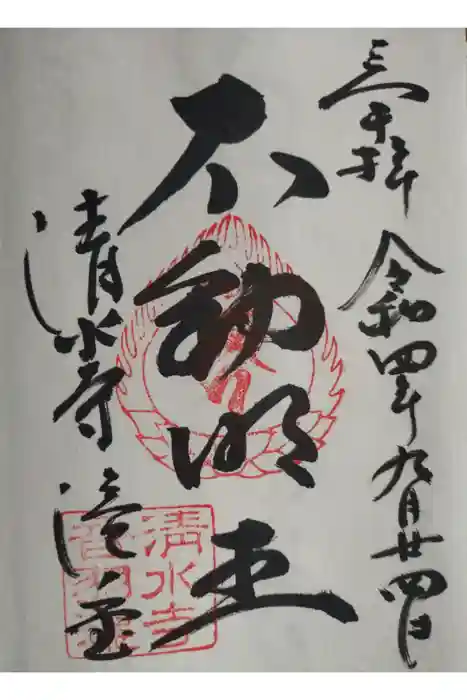 奉拝 令和四年九月廿四日
不動明王
清水寺 滝堂
清水寺
音羽瀧